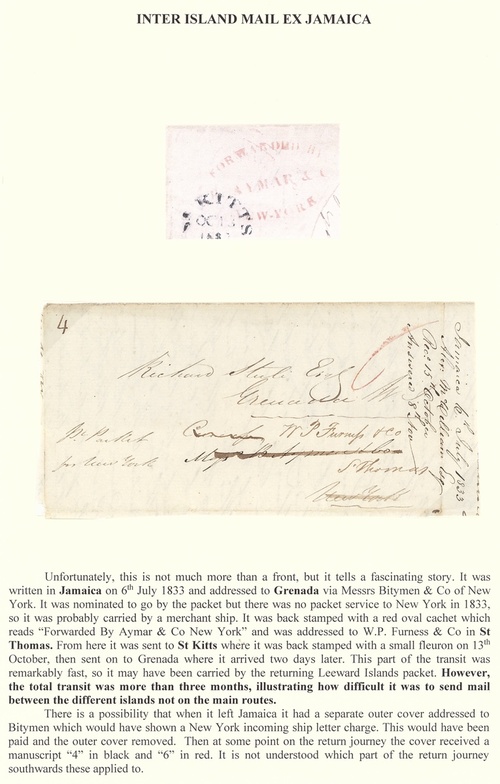 INTER ISLAND MAIL EX JAMAICA
FORWARDED BY
AYMAR & C
W-YORK
KITTS
OC 13
4
Richard Esq
Grenada W.
Pr Packet
for New York
W P Furness & Co
St Thomas
New York
Jamaica 6th July 1833
Alexr McWilliam Esq
Rec 15th October
Answered 8 Nov
Unfortunately, this is not much more than a front, but it tells a fascinating story. It was
written in Jamaica on 6th July 1833 and addressed to Grenada via Messrs Bitymen & Co of New
York. It was nominated to go by the packet but there was no packet service to New York in 1833,
so it was probably carried by a merchant ship. It was back stamped with a red oval cachet which
reads “Forwarded By Aymar & Co New York” and was addressed to W.P. Furness & Co in St
Thomas. From here it was sent to St Kitts where it was back stamped with a small fleuron on 13th
October, then sent on to Grenada where it arrived two days later. This part of the transit was
remarkably fast, so it may have been carried by the returning Leeward Islands packet. However,
the total transit was more than three months, illustrating how difficult it was to send mail
between the different islands not on the main routes.
There is a possibility that when it left Jamaica it had a separate outer cover addressed to
Bitymen which would have shown a New York incoming ship letter charge. This would have been
paid and the outer cover removed. Then at some point on the return journey the cover received a
manuscript “4” in black and “6” in red. It is not understood which part of the return journey
southwards these applied to.